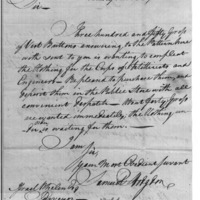 Sir
Three hundred and fifty Gross
of Vest Buttons answering to the Pattern here
with sent to you are wanting to compleat
the Clothing for the Corps of Artillerists and
Engineers. Be pleased to purchase them, and
deposit them in the Public Store with all
convenient Despatch. Most forty Gross
are wanted immediately, the Clothing
now waiting for them
I am
Sir
Your Most Obedient Servant
Samuel Hodgdon
Israel Whelen Esq
Purveyor